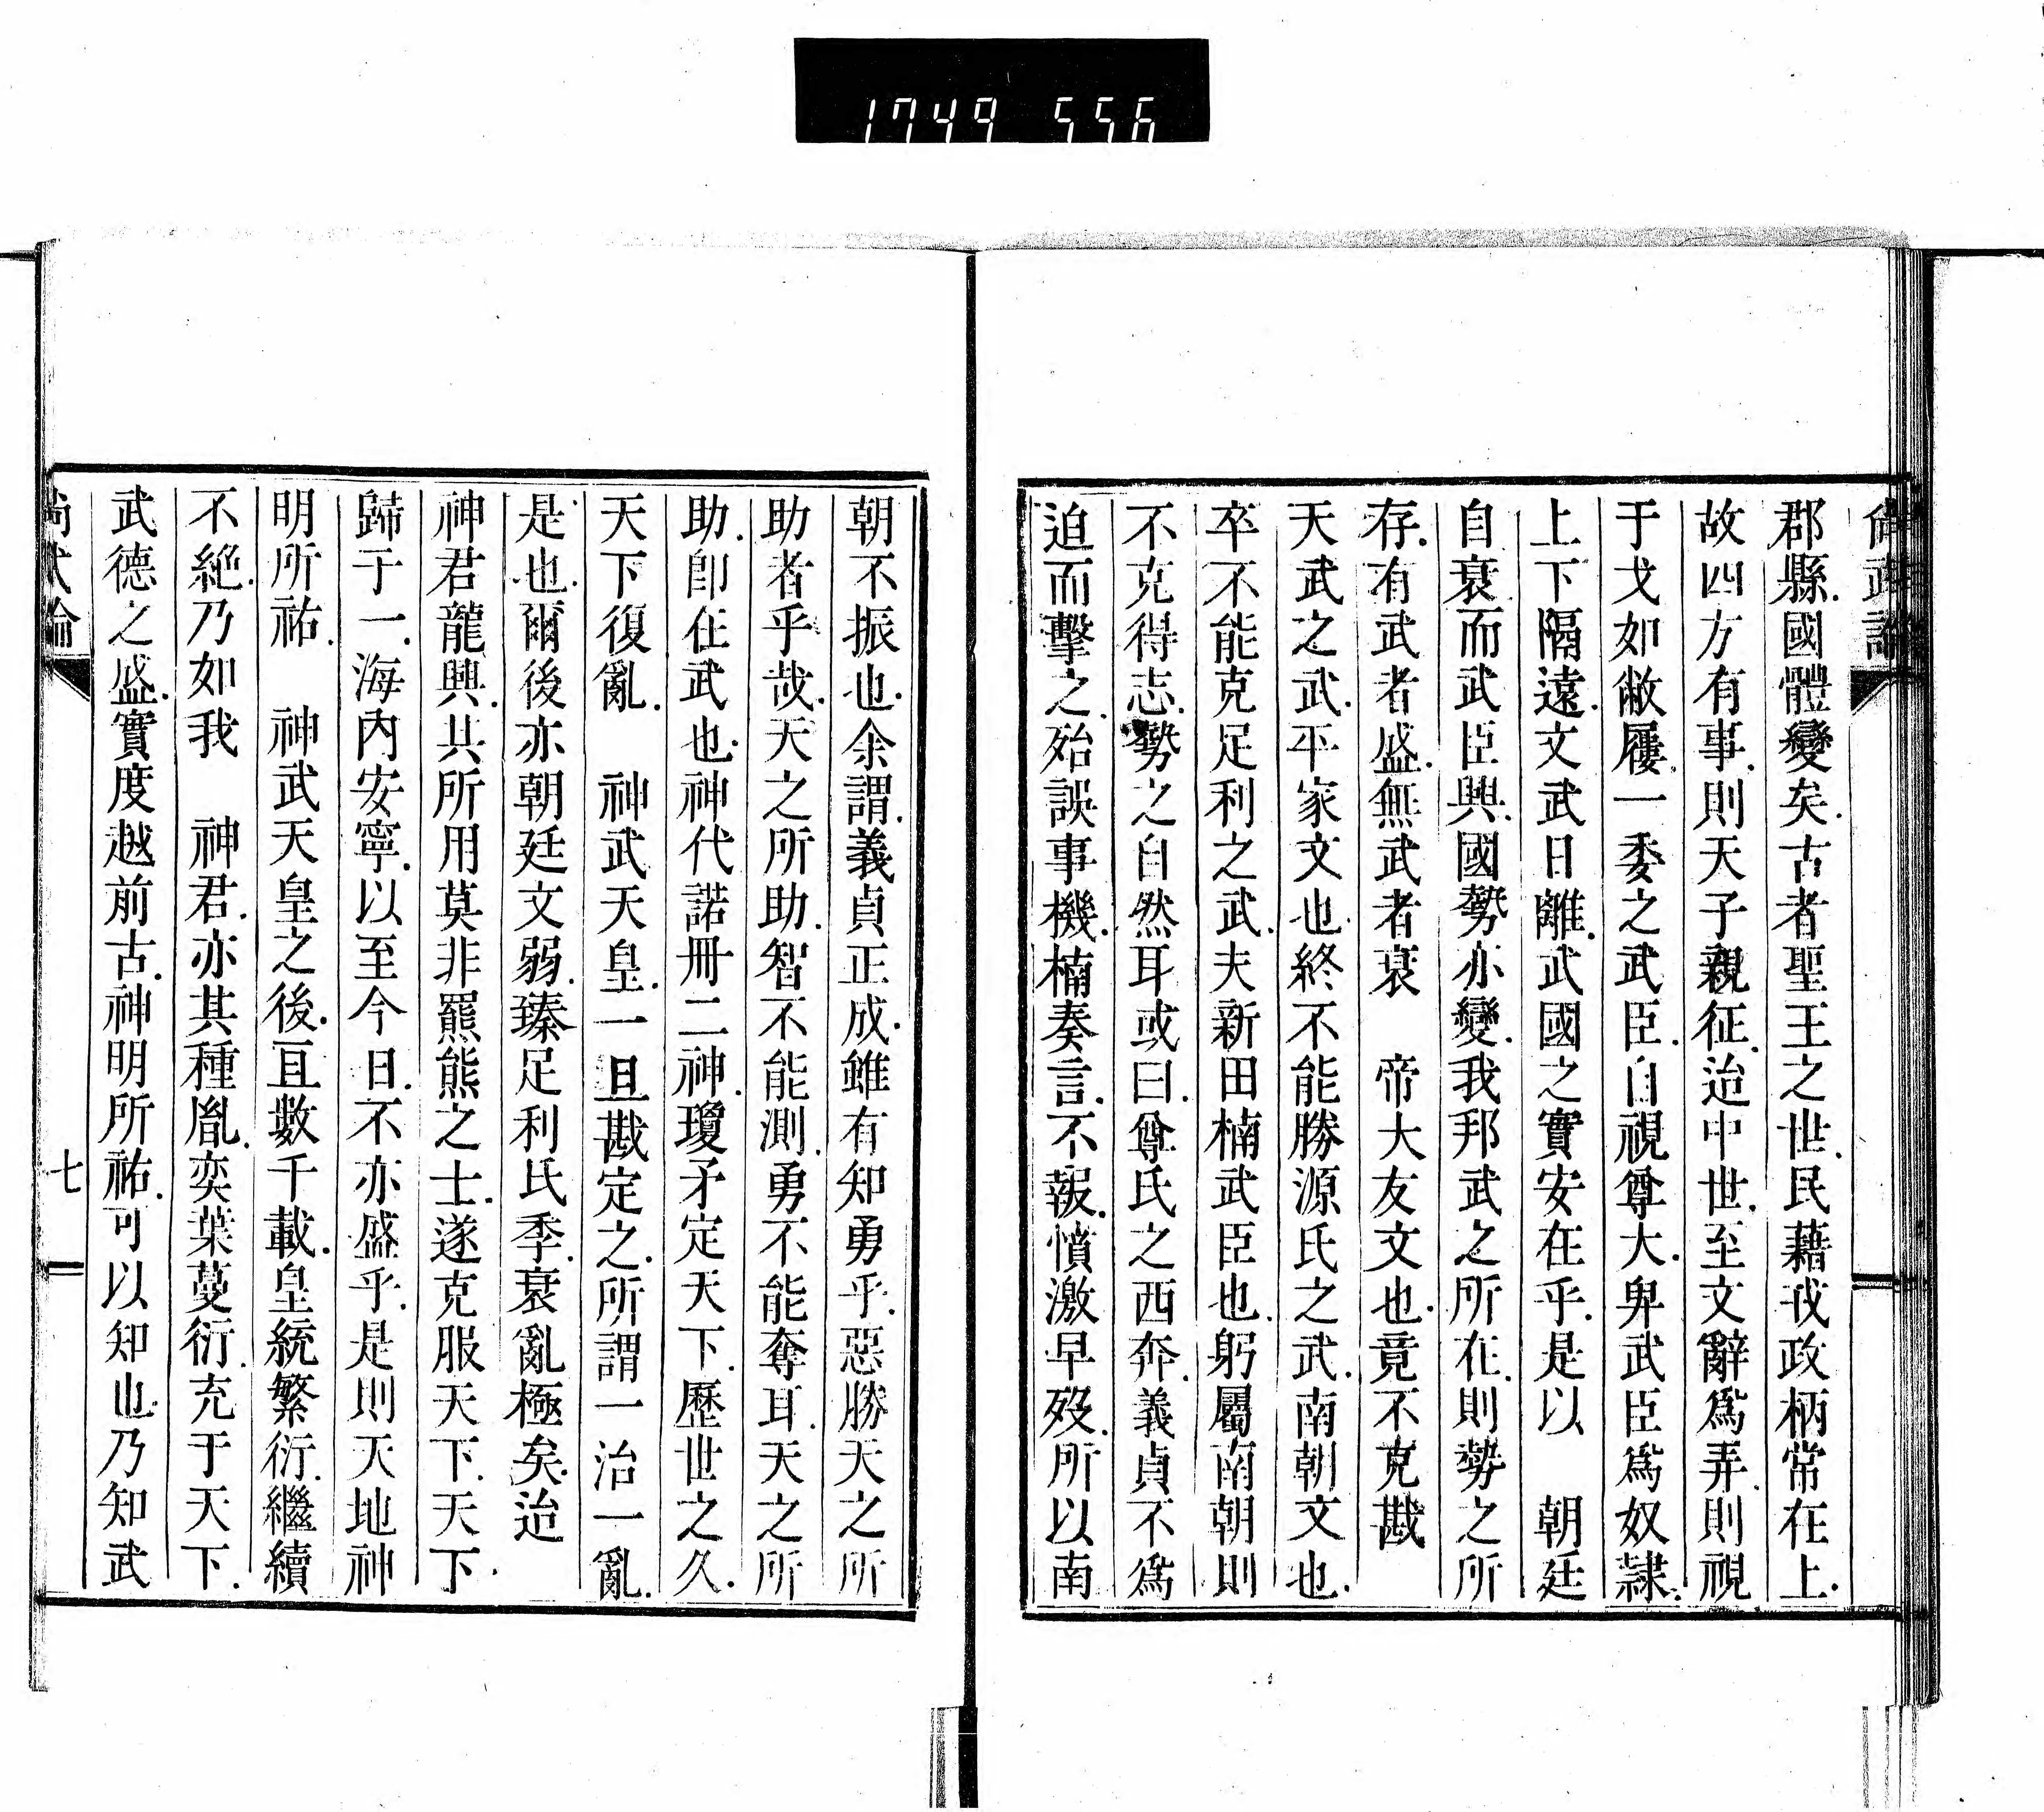 1749 556
尚武論
郡縣.國體變矣.古者聖王之世.民藉戎政柄常在上.
故四方有事.則天子親征.迨中世.至文辭爲弄.則視
于戈如敝屨.一委之武臣.自視尊大.卑武臣爲奴隷.
上下隔遠.文武日離.武國之實安在乎.是以　朝廷
自衰.而武臣興.國勢亦變.我邦武之所在.則勢之所
存.有武者盛.無武者衰　帝大友文也.竟不克戡
天武之武.平家文也.終不能勝源氏之武.南朝文也.
卒不能克足利之武.夫新田楠武臣也.躬屬南朝則
不克得志.勢之自然耳或曰.尊氏之西奔.義貞不爲
迫而擊之.殆誤事機.楠奏言.不報.憤激早歿.所以南
朝不振也.余謂.義貞正成.雖有知勇乎.惡勝天之所
助者乎哉.天之所助.智不能測.勇不能奪耳.天之所
助.卽在武也.神代諾冊二神.瓊矛定天下.歷世之久.
天下復亂.　神武天皇.一旦戡定之.所謂一治一亂.
是也.爾後亦朝廷文弱.瑧足利氏季.衰亂極矣.迨
神君龍興.其所用莫非羆熊之士.遂克服天下.天下.
歸于一.海內安寧.以至今日.不亦盛乎.是則天地神
明所祐.　神武天皇之後.亘數千載.皇統繁衍.繼續
不絶.乃如我　神君.亦其種胤.奕葉蔓衍.充于天下.
武德之盛.實度越前古.神明所祐.可以知也.乃知武
尚武論　七